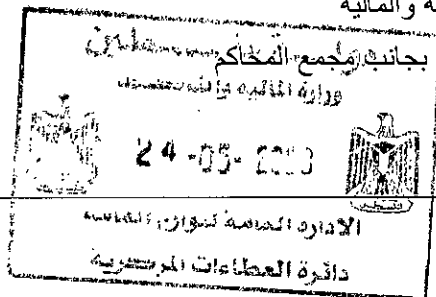 ة والمالية
بجانب مجمع المحاكم
وزارة المالية والتخطيط
24-05-
الادارة العامة للوازم العامة
دائرة العطاءات المركزية